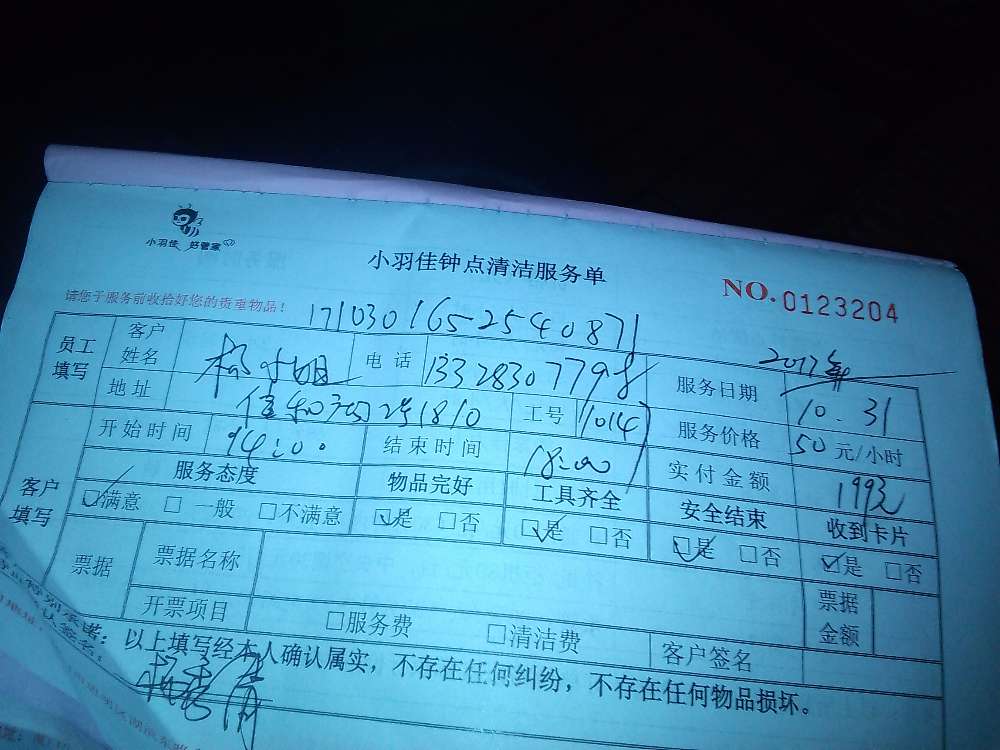 小羽佳 好管家
小羽佳钟点清洁服务单
NO.0123204
请您于服务前收拾好您的贵重物品！
1710301652540871
2017年
员工填写 客户姓名 杨小姐 电话 13328307798 服务日期 10.31
地址 2#1810 工号 1014 服务价格 50元/小时
开始时间 14:00 结束时间 18:00 实付金额 199元
客户填写 服务态度 物品完好 工具齐全 安全结束 收到卡片
☑满意 □一般 □不满意 ☑是 □否 ☑是 □否 ☑是 □否 ☑是 □否
票据 票据名称 票据金额
开票项目 □服务费 □清洁费 客户签名
以上填写经本人确认属实，不存在任何纠纷，不存在任何物品损坏。